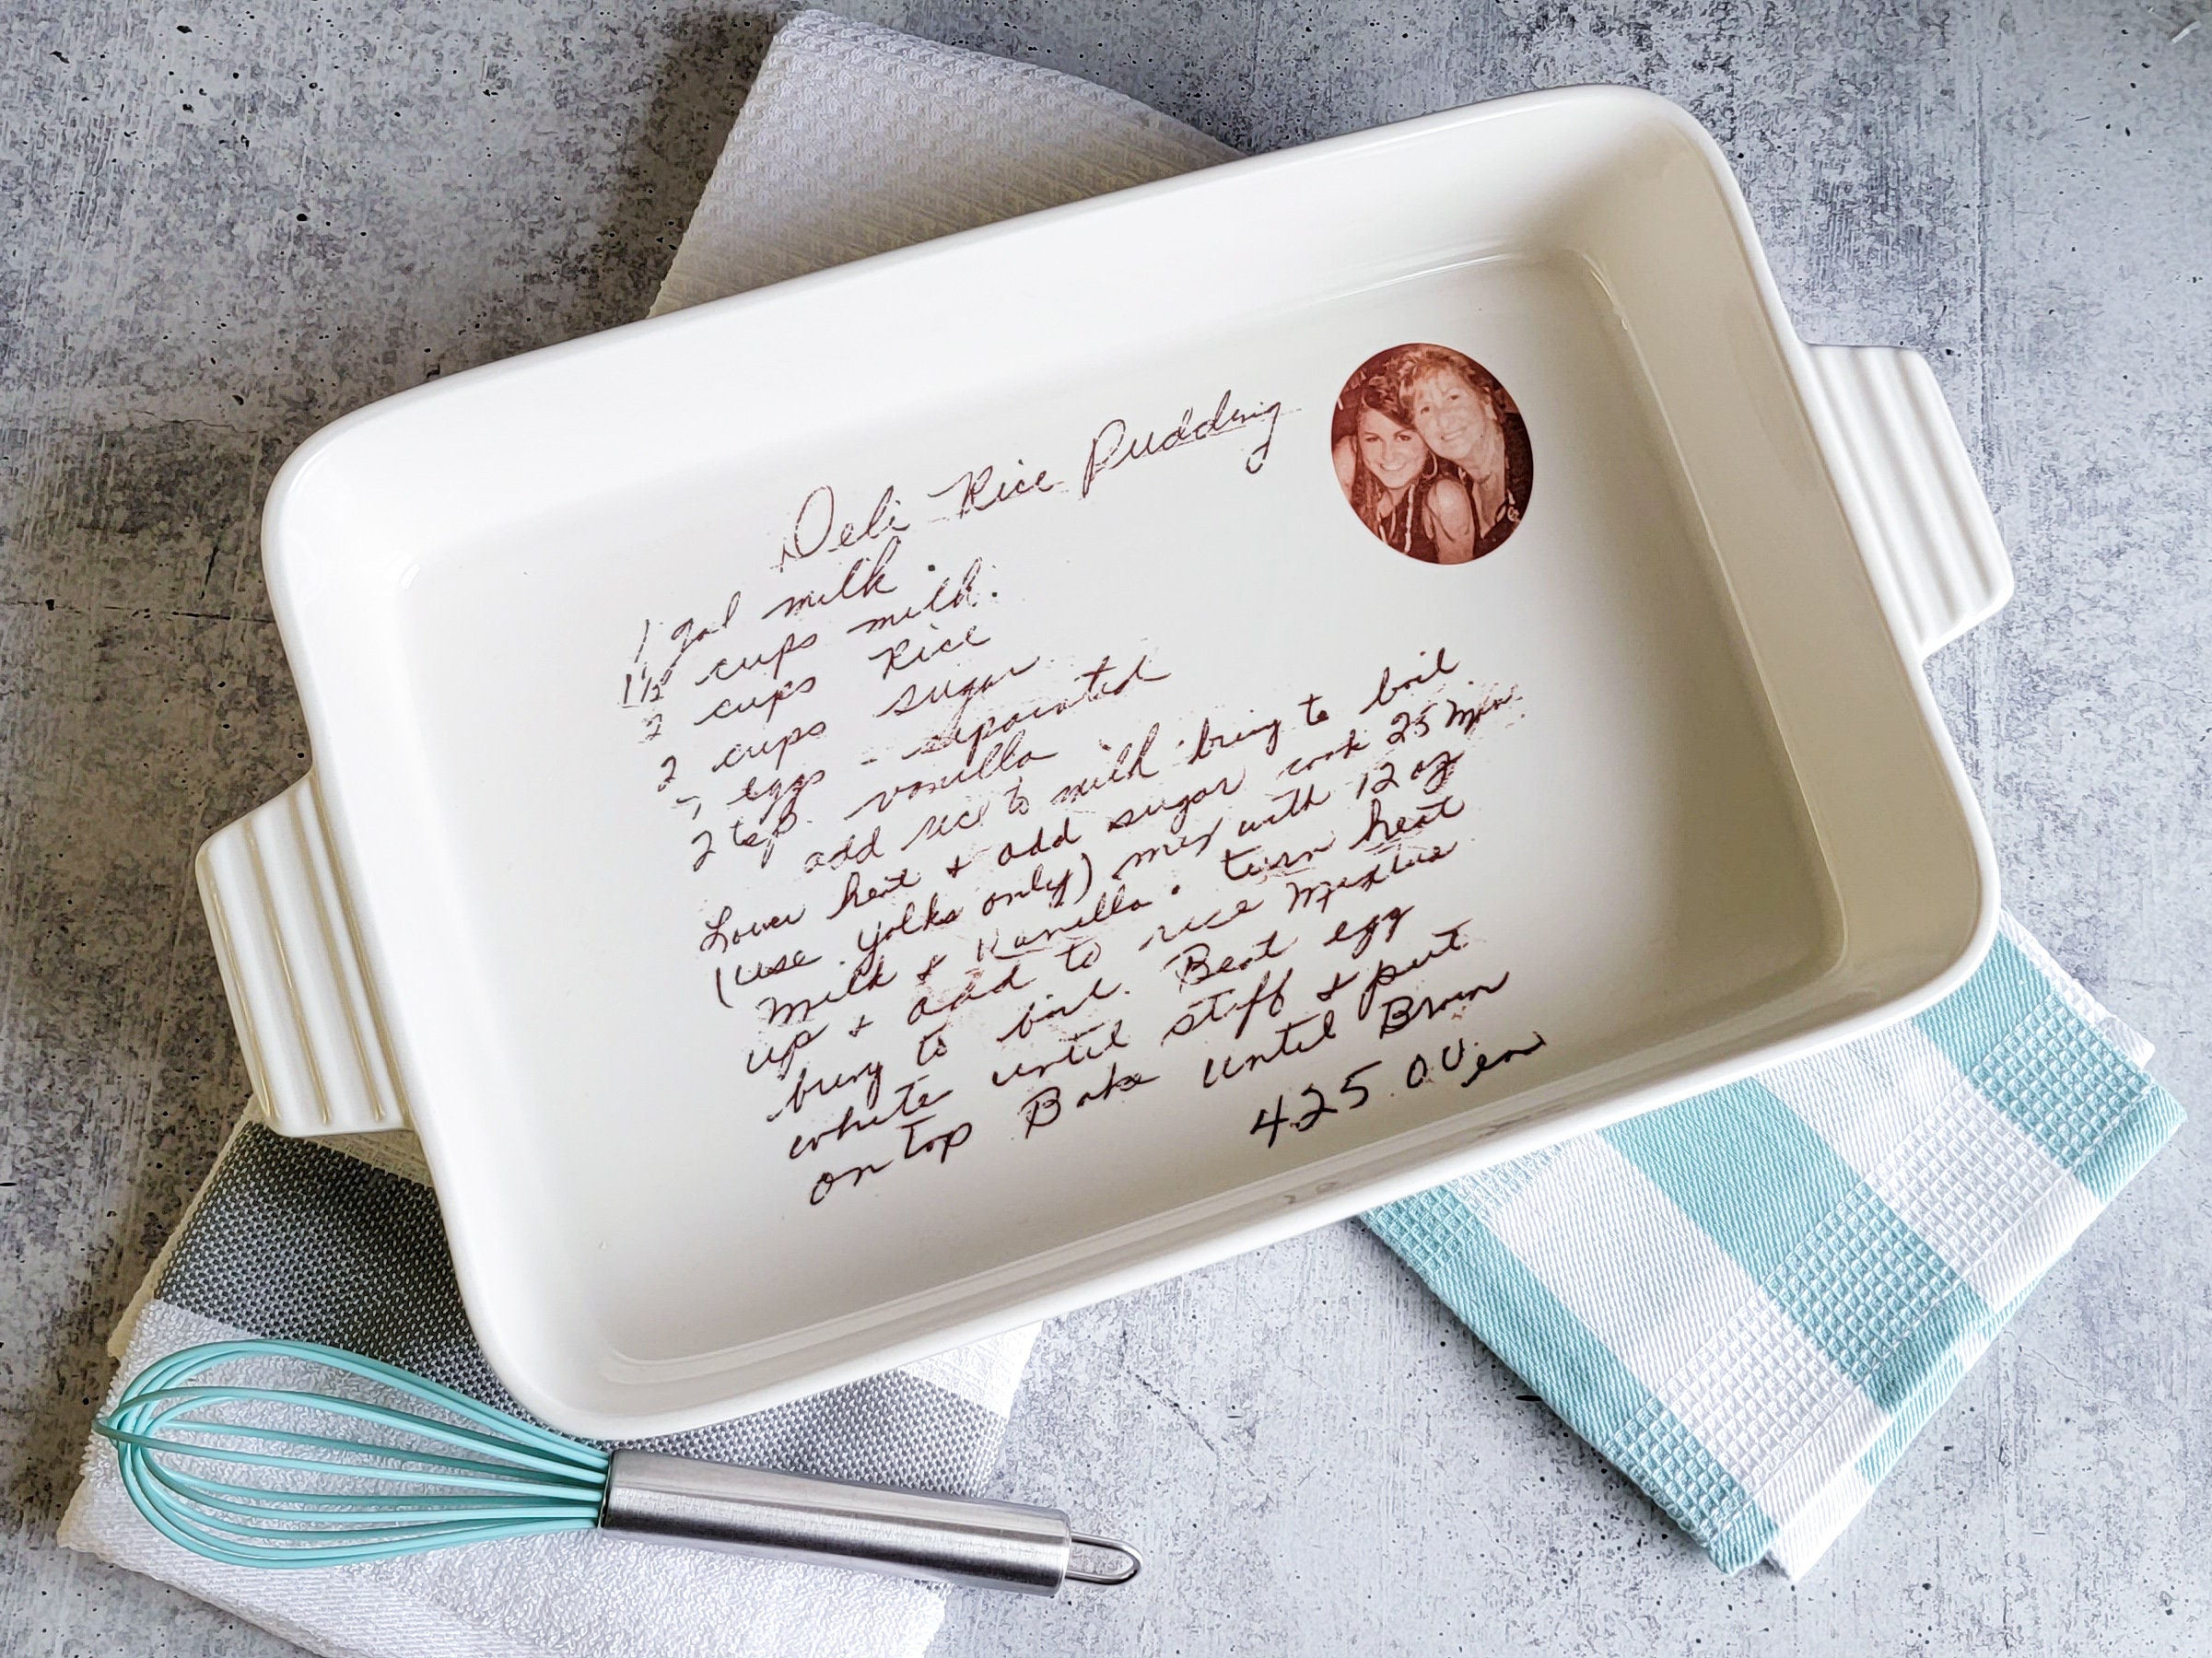 Deli Rice Pudding
1 gal milk.
1 1/2 cups milk.
2 cups Rice
2 cups sugar
7 eggs - separated
2 tsp. vanilla
add rice to milk bring to boil
Lower heat & add sugar cook 25 min.
(use yolks only) mix with 12 oz
milk & Vanilla. turn heat
up & add to rice mixture
bring to boil. Beat egg
white until stiff & put
on top Bake until Brown
425 oven